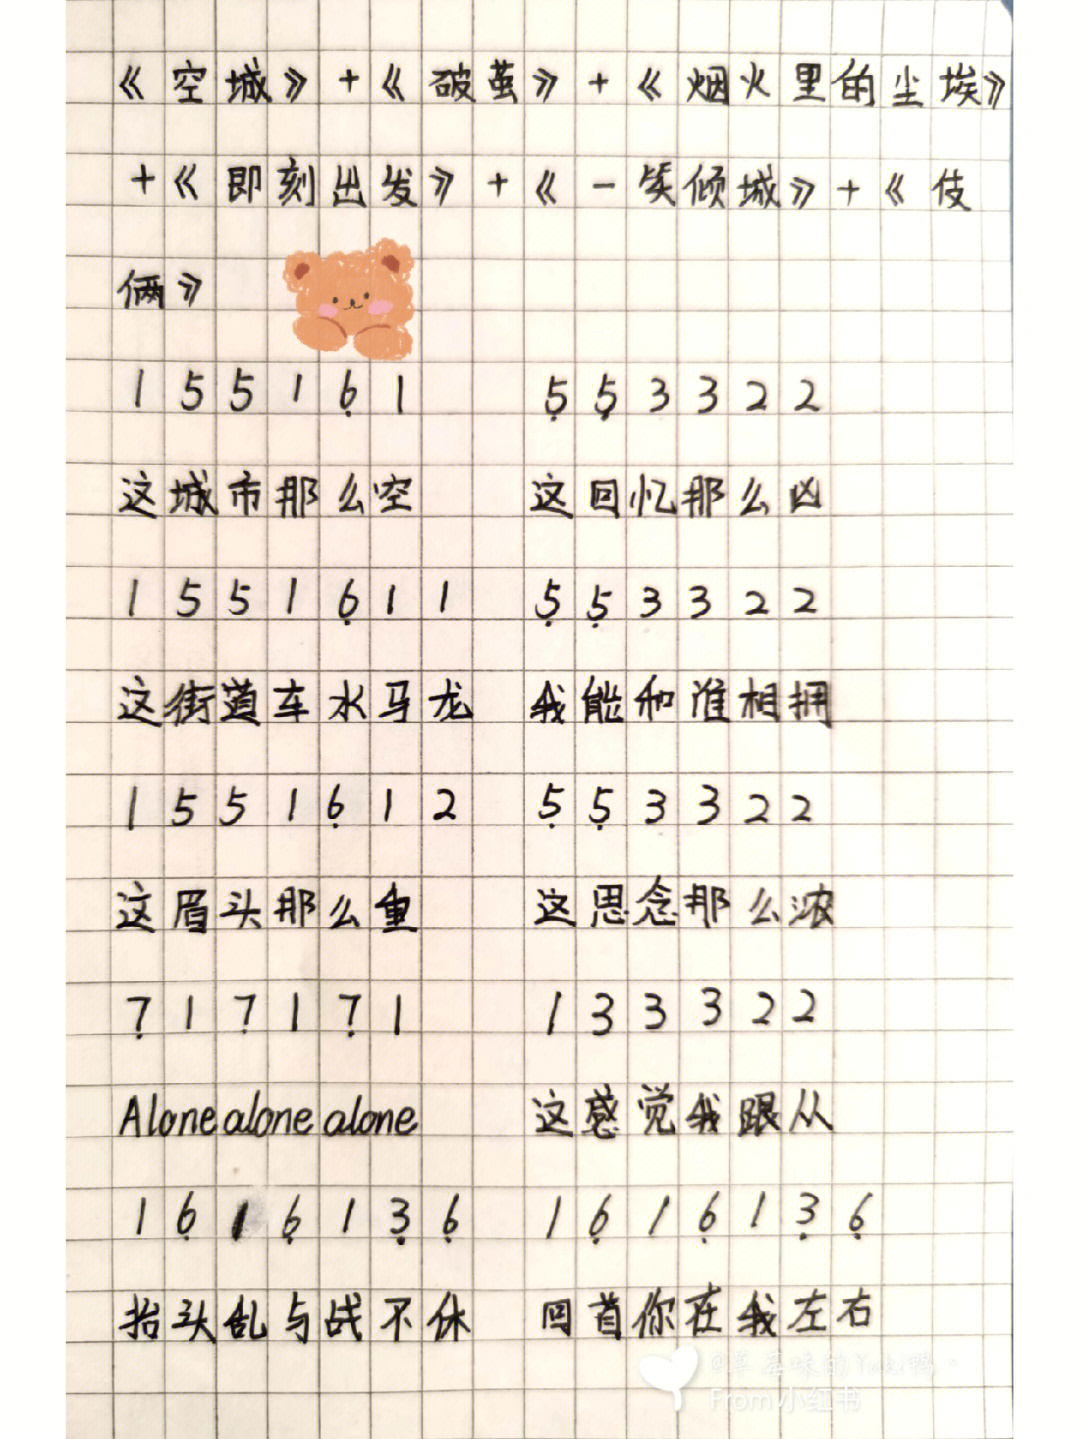 《空城》+《破茧》+《烟火里的尘埃》
+《即刻出发》+《一笑倾城》+《伎
俩》
1 5 5 1 6̣ 1 5̣ 5̣ 3 3 2 2
这城市那么空 这回忆那么凶
1 5 5 1 6̣ 1 1 5̣ 5̣ 3 3 2 2
这街道车水马龙 我能和谁相拥
1 5 5 1 6̣ 1 2 5̣ 5̣ 3 3 2 2
这眉头那么重 这思念那么浓
7̣ 1 7̣ 1 7̣ 1 1 3 3 3 2 2
Alone alone alone 这感觉我跟从
1 6̣ 1 6̣ 1 3̣ 6̣ 1 6̣ 1 6̣ 1 3̣ 6̣
抬头乱与战不休 回首你在我左右
@草莓味的Yuki鸭
From小红书